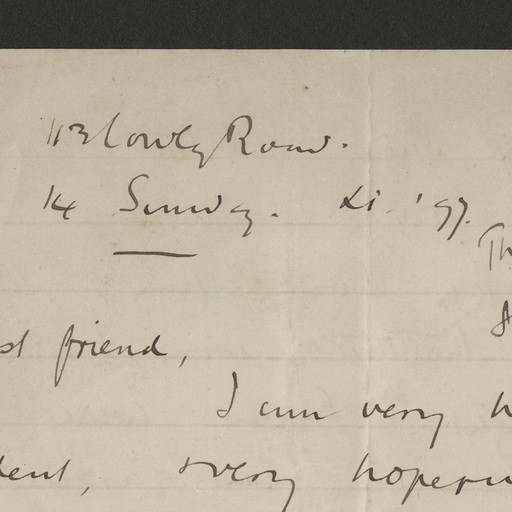 113 Cowley Road.
14 Sunday. XI. '97.
Th
st friend,
I am very h
dent, & very hopefu